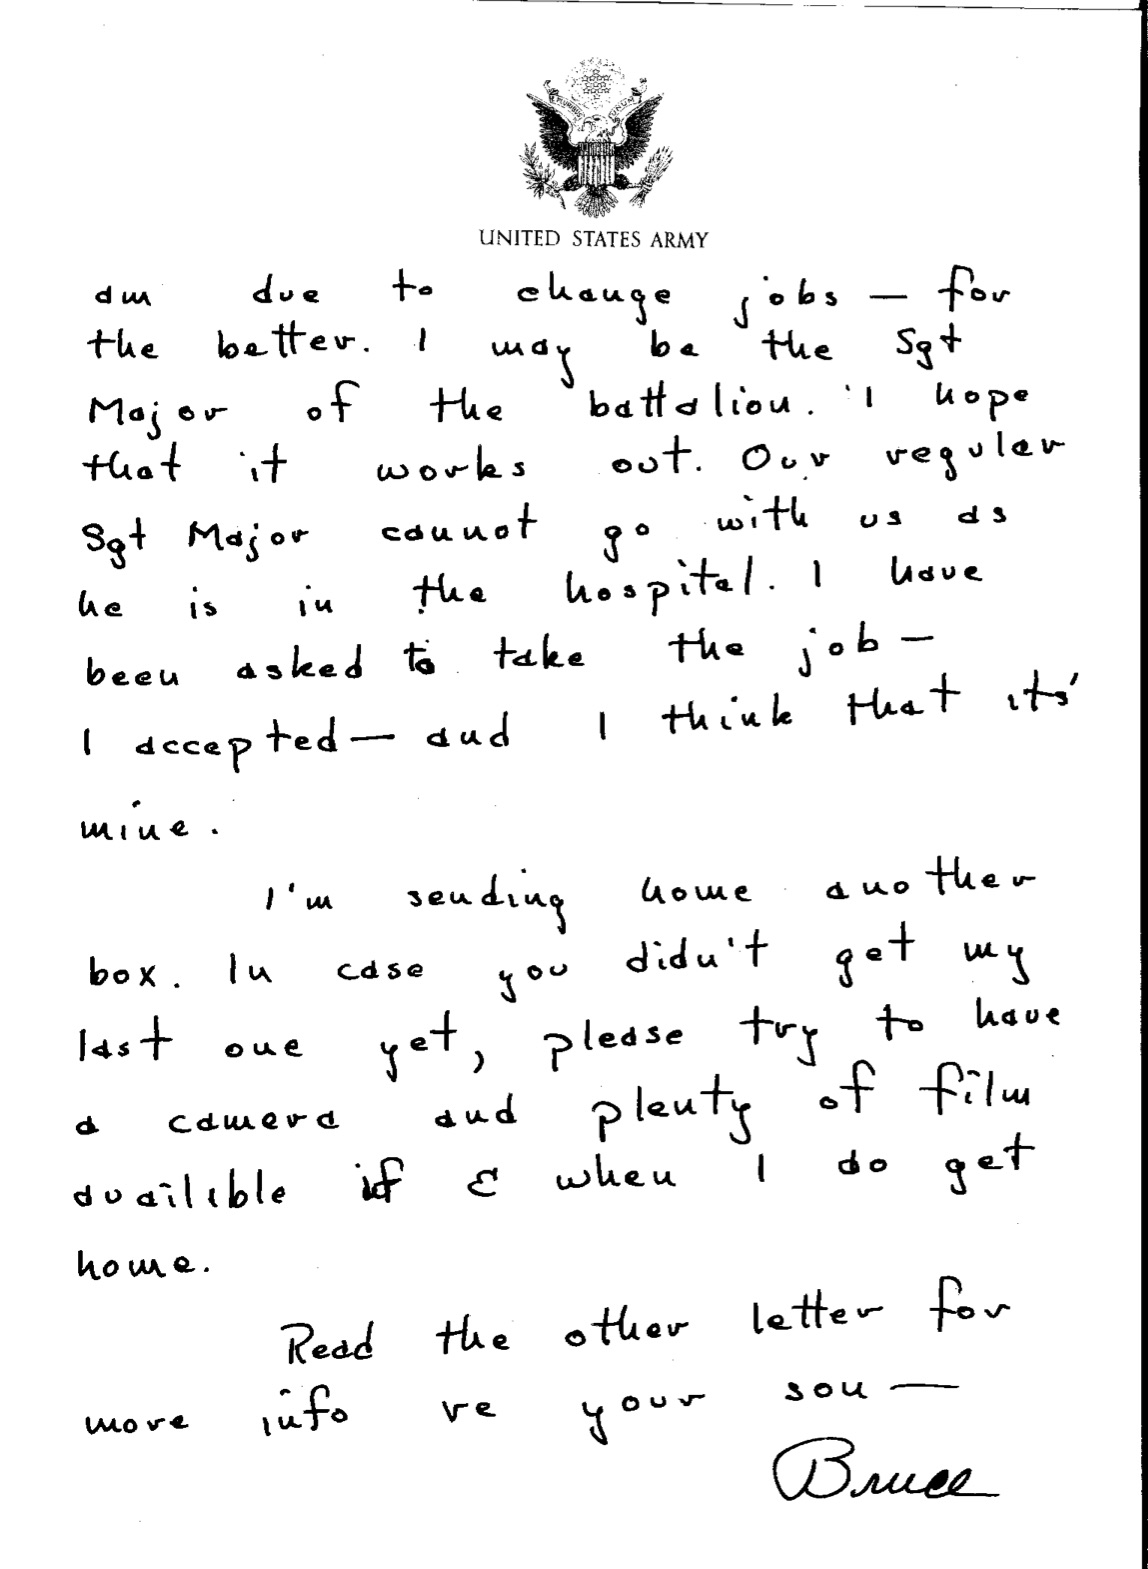 UNITED STATES ARMY
am due to change jobs — for
the better. I may be the Sgt
Major of the battalion. I hope
that it works out. Our regular
Sgt Major cannot go with us as
he is in the hospital. I have
been asked to take the job —
I accepted — and I think that its'
mine.
I'm sending home another
box. In case you didn't get my
last one yet, please try to have
a camera and plenty of film
availible if & when I do get
home.
Read the other letter for
more info re your son —
Bruce